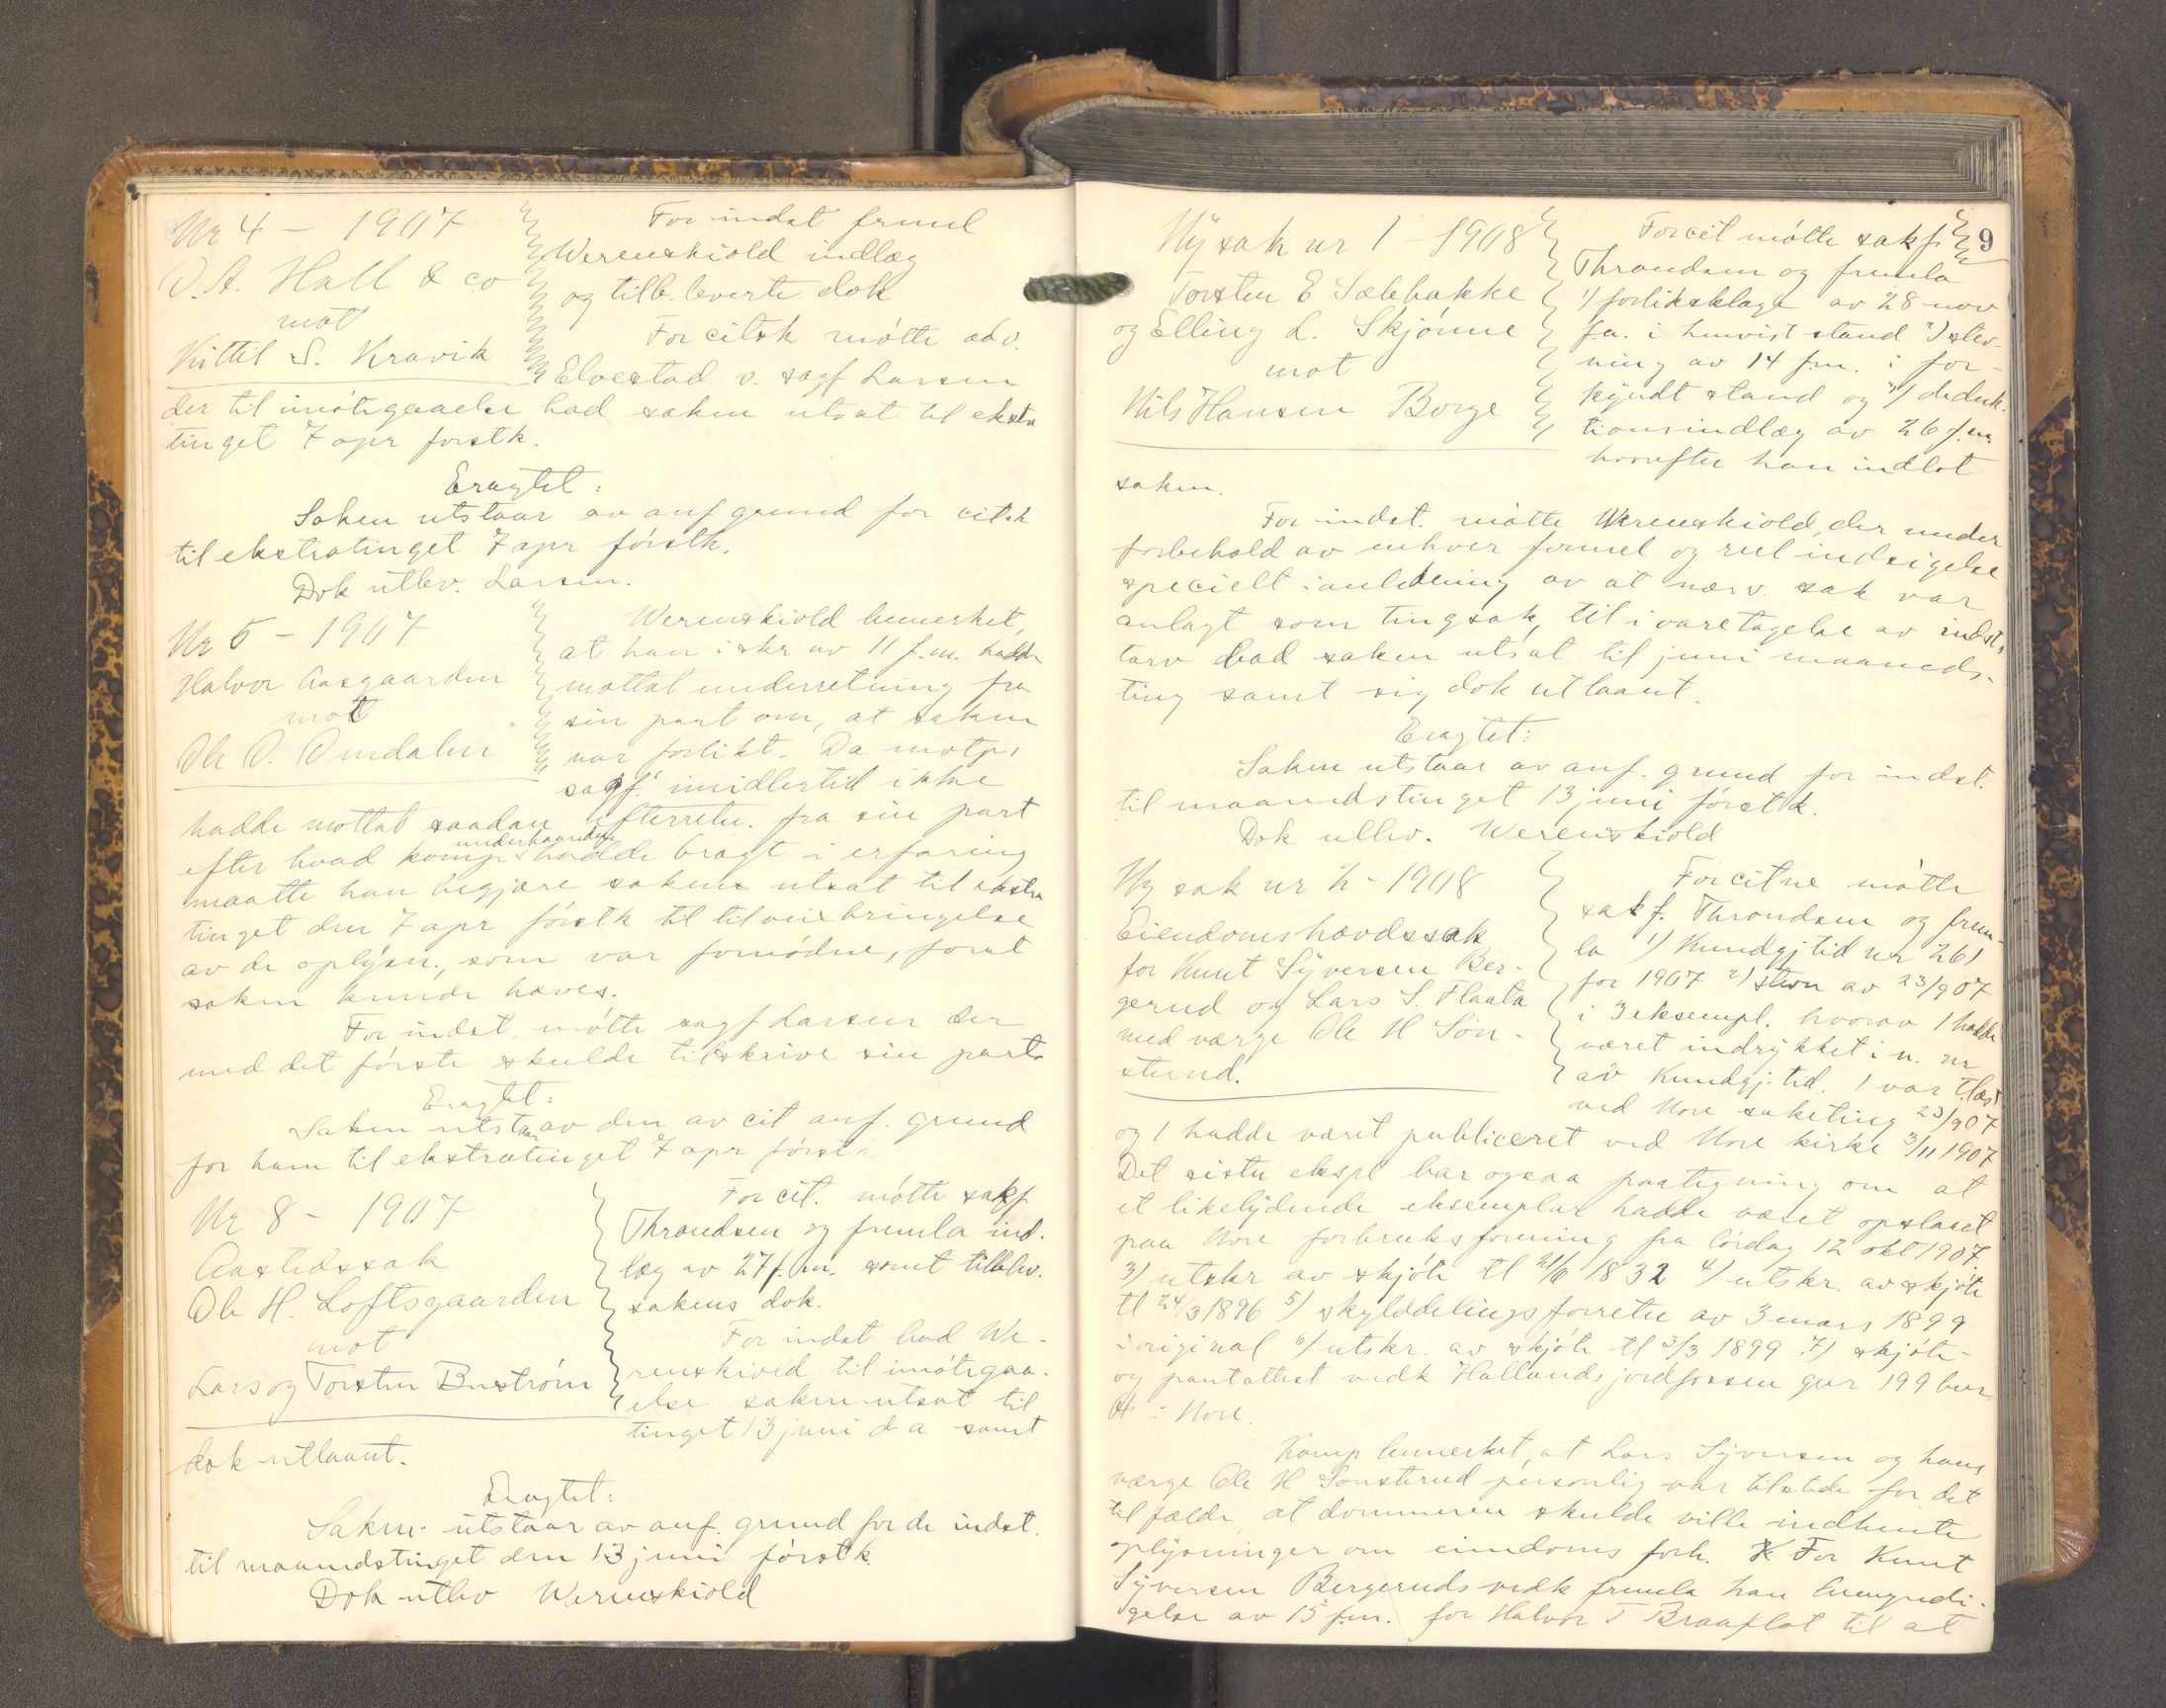 Nr 4 – 1907
O. A. Hall & co
mot
Kittil S. Kravik
For indst freml
Werenskiold indlæg
og tilb. leverte dok
For citsk møtte adv.
Elvestad v. sagf Larsen
der til imøtegaaelse bad saken utsat til ekstra
tinget 7 apr førstk.
Eragtet:
Saken utstaar av anf grund for citsk
til ekstratinget 7 apr førstk.
Dok utlev. Larsen.
Nr 5 – 1907
Halvor Aasgaarden
mot
Ole O. Omdalen
Werenskiold bemerket,
at han i skr av 11 f.m. hadde
mottat underretning fra
sin part om, at saken
var forlikt. Da motp.
sagf. imidlertid ikke
hadde mottat saadan efterretn. fra sin part
efter hvad komp underhaanden hadde bragt i erfaring
maatte han begjære saken utsat til ekstra
tinget den 7 apr førstk til tilveiebringelse
av de oplysn., som var fornødne, forat
saken kunde hæves.
For indst. møtte sagf Larsen der
med det første skulde tilskrive sin part.
Eragtet:
Saken utstaar av den av cit anf. grund
for ham til ekstratinget 7 apr først
Nr 8 – 1907
Aastedssak
Ole H. Loftsgaarden
mot
Lars og Torsten Buström
For cit. møtte sakf
Throndsen og fremla ind-
læg av 27 f.m. samt tilblev.
sakens dok.
For indst bad We-
renskiold til imøtegaa-
else saken utsat til
tinget 13 juni d a samt
dok utlaant.
Eragtet:
Saken utstaar av anf. grund for de indst.
til maanedstinget den 13 juni førstk.
Dok utlev Werenskiold
9
Ny sak nr 1 – 1908
Torsten E Sælebakke
og Elling L. Skjønne
mot
Nils Hansen Borge
For cit møtte sakf.
Throndsen og fremla
1) forliksklage av 28 nov
f.a. i henvist stand 2) stev-
ning av 14 f.m. i for-
kyndt stand og 3) deduk-
tionsindlæg av 26 f.m.
hvorefter han indlot
saken.
For indst. møtte Werenskiold, der under
forbehold av enhver formel og reel indsigelse
specielt i anledning av at nærv. sak var
anlagt som tingsak, til ivaretagelse av indst.
tarv bad saken utsat til juni maaneds-
ting samt sig dok utlaant.
Eragtet:
Saken utstaar av anf. grund for indst.
til maanedstinget 13 juni førstk.
Dok utlev. Werenskiold
Ny sak nr 2 – 1908
Eiendomshævdssak
for Knut Syversen Ber-
gerud og Lars S. Flaata
med værge Ole H Søn-
sterud.
For citne møtte
sakf. Throndsen og frem-
la 1) Kundgj tid nr 261
for 1907 2) stevn av 23/9 07
i 3 eksempl. hvorav 1 hadde
været indrykket i n. nr
av Kundgj. tid. 1 var tlæst
ved Nore saketing 23/9 07
og 1 hadde været publiceret ved Nore kirke 3/11 1907
Det siste ekspl bar ogsaa paategning om at
et likelydende eksemplar hadde været opslaaet
paa Nore forbruksforening fra lørdag 12 okt 1907.
3) utskr av skjøte tl 21/6 1832 4) utskr. av skjøte
tl 24/3 1896 5) skylddelingsforretn av 3 mars 1899
i original 6) utskr. av skjøte tl 3/3 1899 7) skjøte-
og pantattest vedk Hallandsjordfossen gnr 199 bnr
4 i Nore.
Komp bemerket, at Lars Syversen og hans
værge Ole H Sønsterud personlig var tilstede for det
tilfælde, at dommeren skulde ville indhente
oplysninger om eiendoms forh. For Knut
Syversen Bergeruds vedk fremla han bemyndi-
gelse av 15 f.m. for Halvor T Braaflat til at